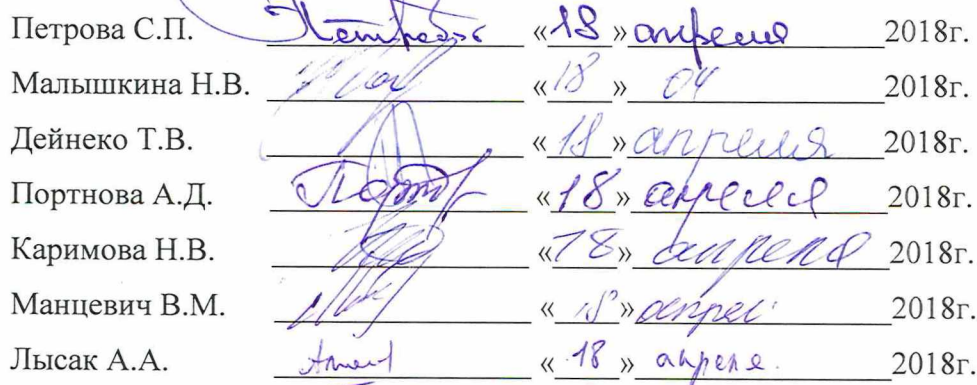 Петрова С.П. «18» апреля 2018г.
Малышкина Н.В. «18» 04 2018г.
Дейнеко Т.В. «18» апреля 2018г.
Портнова А.Д. «18» апреля 2018г.
Каримова Н.В. «18» апреля 2018г.
Манцевич В.М. «18» 2018г.
Лысак А.А. «18» апреля. 2018г.